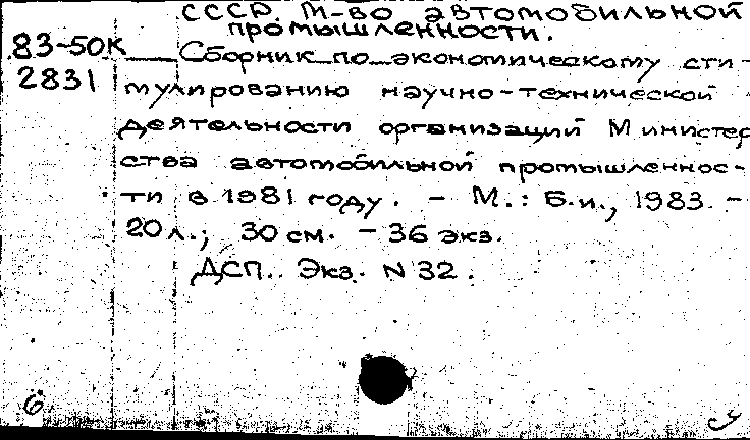 СССР. М-во автомобильной
промышленности.
83-50К
2831
Сборник по экономическому сти-
мулированию научно-технической
деятельности организаций Министер
ства автомобильной промышленнос-
ти в 1981 году. - М.: Б.и., 1983. -
20 л.; 30 см. - 36 экз.
ДСП.. Экз. N 32.
б